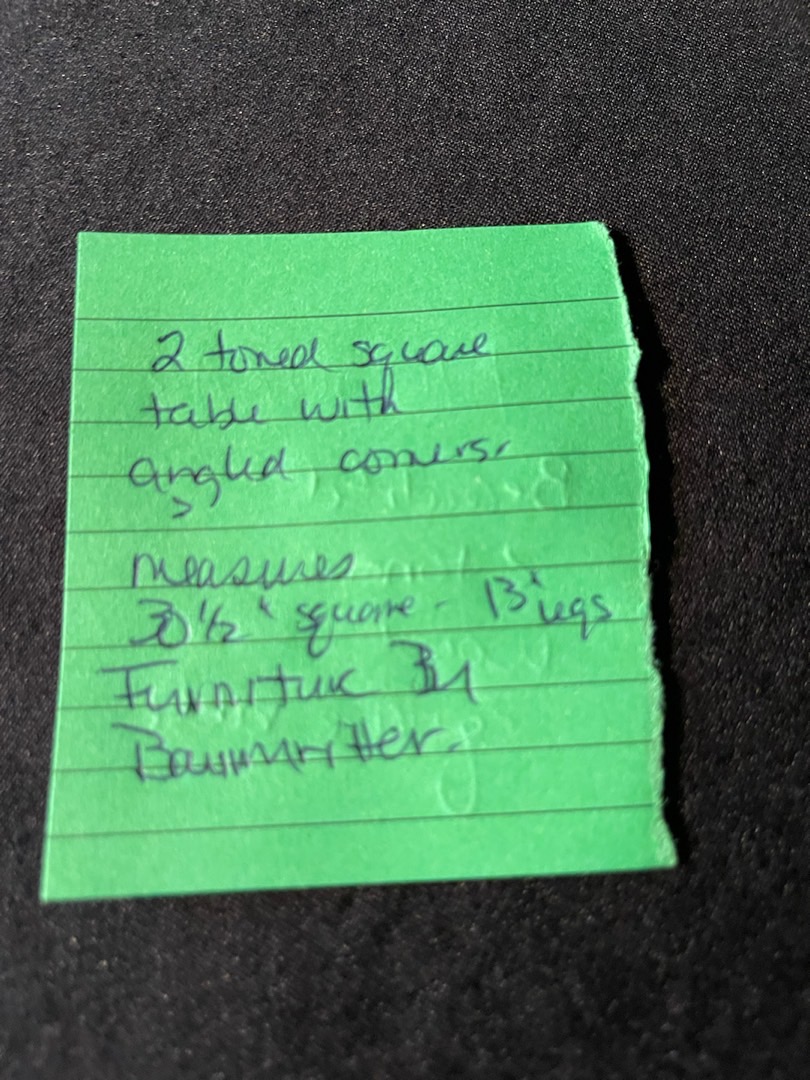 2 toned square
table with
angled corners.
measures
30 1/2" square - 13" legs
Furniture By
Baumritter.